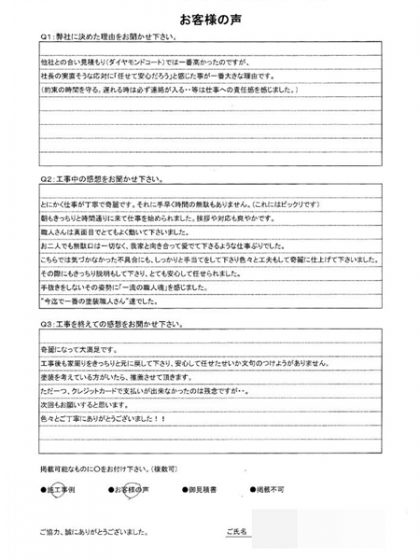 お客様の声
Q1:弊社に決めた理由をお聞かせ下さい。
他社との合い見積もり(ダイヤモンドコート)では一番高かったのですが、
社長の実直そうな応対に「任せて安心だろう」と感じた事が一番大きな理由です。
(約束の時間を守る。遅れる時は必ず連絡が入る・・等は仕事への責任感を感じました。)
Q2:工事中の感想をお聞かせ下さい。
とにかく仕事が丁寧で奇麗です。それに手早く時間の無駄もありません。(これにはビックリです)
朝もきっちりと時間通りに来て仕事を始められました。挨拶や対応も爽やかです。
職人さんは真面目でとてもよく動いて下さいました。
お二人でも無駄口は一切なく、我家と向き合って愛でて下さるような仕事ぶりでした。
こちらでは気づかなかった不具合にも、しっかりと手当をして下さり色々と工夫もして奇麗に仕上げて下さいました。
その際にもきっちり説明もして下さり、とても安心して任せられました。
手抜きをしないその姿勢に「一流の職人魂」を感じました。
"今迄で一番の塗装職人さん"達でした。
Q3:工事を終えての感想をお聞かせ下さい。
奇麗になって大満足です。
工事後も家周りをきっちりと元に戻して下さり、安心して任せたせいか文句のつけようがありません。
塗装を考えている方がいたら、推薦させて頂きます。
ただ一つ、クレジットカードで支払いが出来なかったのは残念ですが・・。
次回もお願いすると思います。
色々とご丁寧にありがとうございました!!
掲載可能なものに〇をお付け下さい。(複数可)
●施工事例 ●お客様の声 ●御見積書 ●掲載不可
ご協力、誠にありがとうございました。 ご氏名